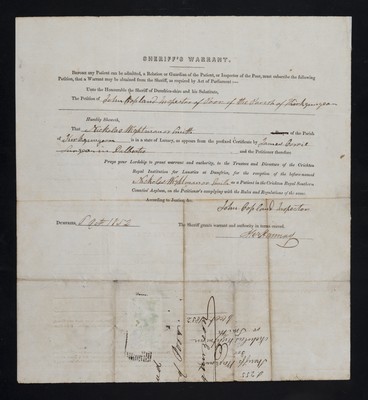 SHERIFF'S WARRANT.
BEFORE any Patient can be admitted, a Relation or Guardian of the Patient, or Inspector of the Poor, must subscribe the following
Petition, that a Warrant may be obtained from the Sheriff, as required by Act of Parliament:—
UNTO the Honourable the Sheriff of Dumfries-shire and his Substitutes,
The Petition of John Copland Inspector of Poor of the Parish of Kirkgunzeon
Humbly Sheweth,
That Nicholas Wightman or Smith of the Parish
of Kirkgunzeon is in a state of Lunacy, as appears from the prefixed Certificate by James
Surgeon in Dalbeattie and the Petitioner therefore
Prays your Lordship to grant warrant and authority, to the Trustees and Directors of the Crichton
Royal Institution for Lunatics at Dumfries, for the reception of the before-named
Nicholas Wightman or Smith as a Patient in the Crichton Royal Southern
Counties' Asylum, on the Petitioner's complying with the Rules and Regulations of the same.
According to Justice, &c.
John Copland Inspector
DUMFRIES, 8 Oct 1852 The Sheriff grants warrant and authority in terms craved.